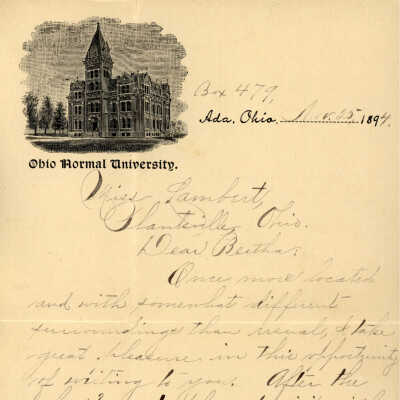 Box 479,
Ada, Ohio. Nov. 25, 1894.
Ohio Normal University.
Miss Lambert,
Plantsville, Ohio.
Dear Bertha:
Once more located
and with somewhat different
surroundings than usual, I take
great pleasure in this opportunity
of writing to you. After the